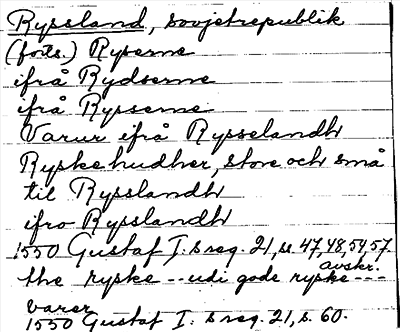 Ryssland, sovjetrepublik
(forts.) Ryserne
ifrå Rydserne
ifrå Rysserne
Varur ifrå Rysselandh
Ryske hudher, store och små
til Rysslandh
ifro Rysslandh
1550 Gustaf I:s reg. 21, ss. 47, 48, 54, 57
avskr.
the ryske -- udi gode ryske ---
varer
1550 Gustaf I:s reg. 21, s. 60.